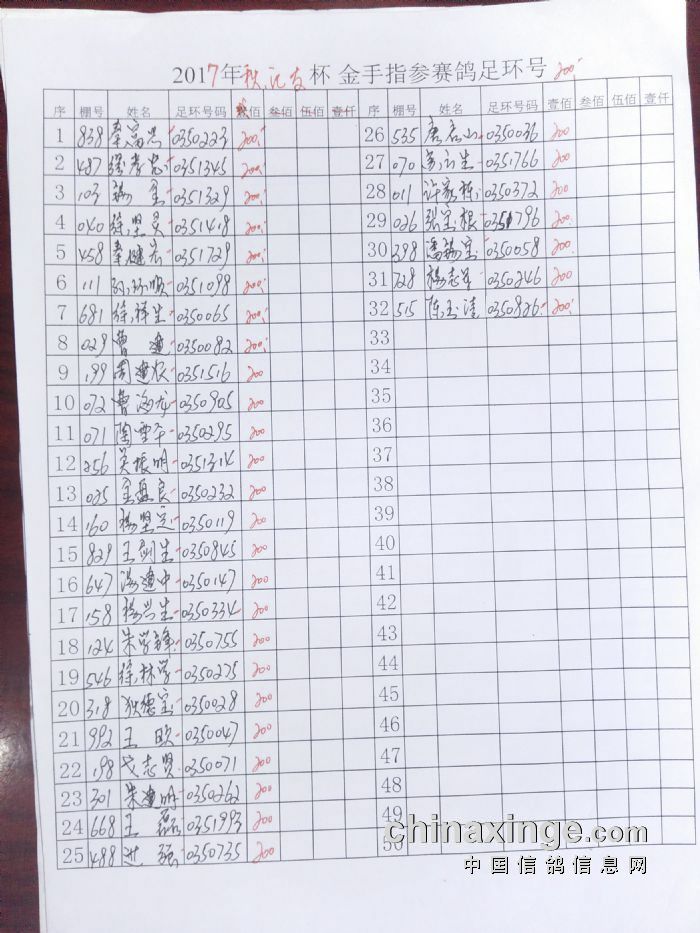 2017年秋 友 杯 金手指参赛鸽足环号 200
序 棚号 姓名 足环号码 佰 叁佰 伍佰 壹仟 序 棚号 姓名 足环号码 壹佰 叁佰 伍佰 壹仟
1 838 秦 兴 0350223 200 26 535 唐 山 0350036 200
2 487 徐孝忠 0351345 200 27 070 生 0351766 200
3 103 杨 0351329 200 28 011 许家栋 0350372 200
4 040 徐坚 0351418 200 29 026 张宝根 0351796 200
5 458 秦健 0351729 200 30 398 潘锡宝 0350058 200
6 111 顺 0351098 200 31 728 杨志军 0350246 200
7 681 徐祥生 0350065 200 32 515 陈玉清 0350826 200
8 029 曹 建 0350082 200 33
9 199 周建 0351516 200 34
10 072 曹海龙 0350905 200 35
11 071 陶雪平 0350295 200 36
12 256 吴振明 0351314 200 37
13 025 金盘良 0350232 200 38
14 160 杨坚定 0350119 200 39
15 829 王剑生 0350845 200 40
16 647 汤建中 0350147 200 41
17 158 杨兴生 0350334 200 42
18 124 朱学锋 0350755 200 43
19 546 徐林学 0350275 200 44
20 318 狄德宝 0350028 200 45
21 992 王 欧 0350047 200 46
22 198 戈志贤 0350071 200 47
23 301 朱建明 0350262 200 48
24 668 王 磊 0351993 200 49
25 488 进 强 0350735 200 50
chinaxinge.com
中国信鸽信息网